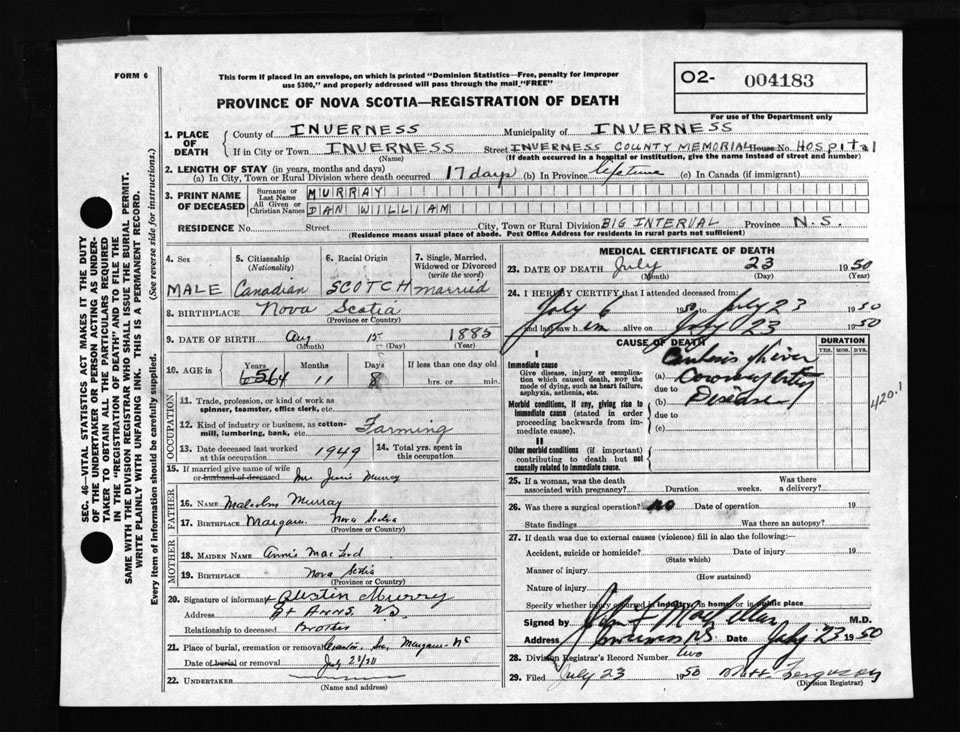 FORM 6
This form if placed in an envelope, on which is printed "Dominion Statistics—Free, penalty for improper
use $300," and properly addressed will pass through the mail "FREE"
PROVINCE OF NOVA SCOTIA—REGISTRATION OF DEATH
O2- 004183
For use of the Department only
1. PLACE OF DEATH
County of INVERNESS Municipality of INVERNESS
If in City or Town INVERNESS Street INVERNESS COUNTY MEMORIAL House No. HOSPITAL
(Name) (If death occurred in a hospital or institution, give the name instead of street and number)
2. LENGTH OF STAY (in years, months and days)
(a) In City, Town or Rural Division where death occurred 17 days (b) In Province lifetime (c) In Canada (if immigrant)
3. PRINT NAME OF DECEASED
Surname or Last Name MURRAY
All Given or Christian Names DAN WILLIAM
RESIDENCE No. Street City, Town or Rural Division BIG INTERVAL Province N.S.
(Residence means usual place of abode. Post Office Address for residents in rural parts not sufficient)
4. Sex 5. Citizenship (Nationality) 6. Racial Origin 7. Single, Married, Widowed or Divorced (write the word)
MALE Canadian SCOTCH married
8. BIRTHPLACE Nova Scotia
(Province or Country)
9. DATE OF BIRTH Aug 15 1885
(Month) (Day) (Year)
10. AGE in Years Months Days If less than one day old
64 11 8 hrs. or min.
OCCUPATION
11. Trade, profession, or kind of work as
spinner, teamster, office clerk, etc.
12. Kind of industry or business, as cotton-
mill, lumbering, bank, etc. Farming
13. Date deceased last worked
at this occupation 1949
14. Total yrs. spent in
this occupation
15. If married give name of wife
or husband of deceased Mrs Murray
FATHER
16. NAME Malcolm Murray
17. BIRTHPLACE Margaree Nova Scotia
(Province or Country)
MOTHER
18. MAIDEN NAME Annie MacLeod
19. BIRTHPLACE Nova Scotia
(Province or Country)
20. Signature of informant Austin Murray
Address St Anns N.S.
Relationship to deceased Brother
21. Place of burial, cremation or removal Margaree NS
Date of burial or removal July
22. UNDERTAKER
(Name and address)
MEDICAL CERTIFICATE OF DEATH
23. DATE OF DEATH July 23 1950
(Month) (Day) (Year)
24. I HEREBY CERTIFY that I attended deceased from:
July 6 1950 to July 23 1950
and last saw h im alive on July 23 1950
CAUSE OF DEATH DURATION
YRS. MOS. DYS.
I
Immediate cause
Give disease, injury or complica-
tion which caused death, not the
mode of dying, such as heart failure,
asphyxia, asthenia, etc.
(a) Cirrhosis Liver
due to Coronary Artery
(b) Disease
due to
(c)
420.1
Morbid conditions, if any, giving rise to
immediate cause (stated in order
proceeding backwards from im-
mediate cause).
II
Other morbid conditions (if important)
contributing to death but not
causally related to immediate cause.
25. If a woman, was the death
associated with pregnancy? Duration weeks. Was there
a delivery?
26. Was there a surgical operation? no Date of operation 19
State findings Was there an autopsy?
27. If death was due to external causes (violence) fill in also the following:—
Accident, suicide or homicide? Date of injury 19
(State which)
Manner of injury
(How sustained)
Nature of injury
Specify whether injury occurred in industry, in home or in public place
Signed by M.D.
Address Inverness N.S. Date July 23 1950
28. Division Registrar's Record Number two
29. Filed July 23 1950 Ferguson
(Division Registrar)
SEC. 46—VITAL STATISTICS ACT MAKES IT THE DUTY
OF THE UNDERTAKER OR PERSON ACTING AS UNDER-
TAKER TO OBTAIN ALL THE PARTICULARS REQUIRED
IN THE "REGISTRATION OF DEATH" AND TO FILE THE
SAME WITH THE DIVISION REGISTRAR WHO SHALL ISSUE THE BURIAL PERMIT.
WRITE PLAINLY WITH UNFADING INK. THIS IS A PERMANENT RECORD.
Every item of information should be carefully supplied. (See reverse side for instructions.)